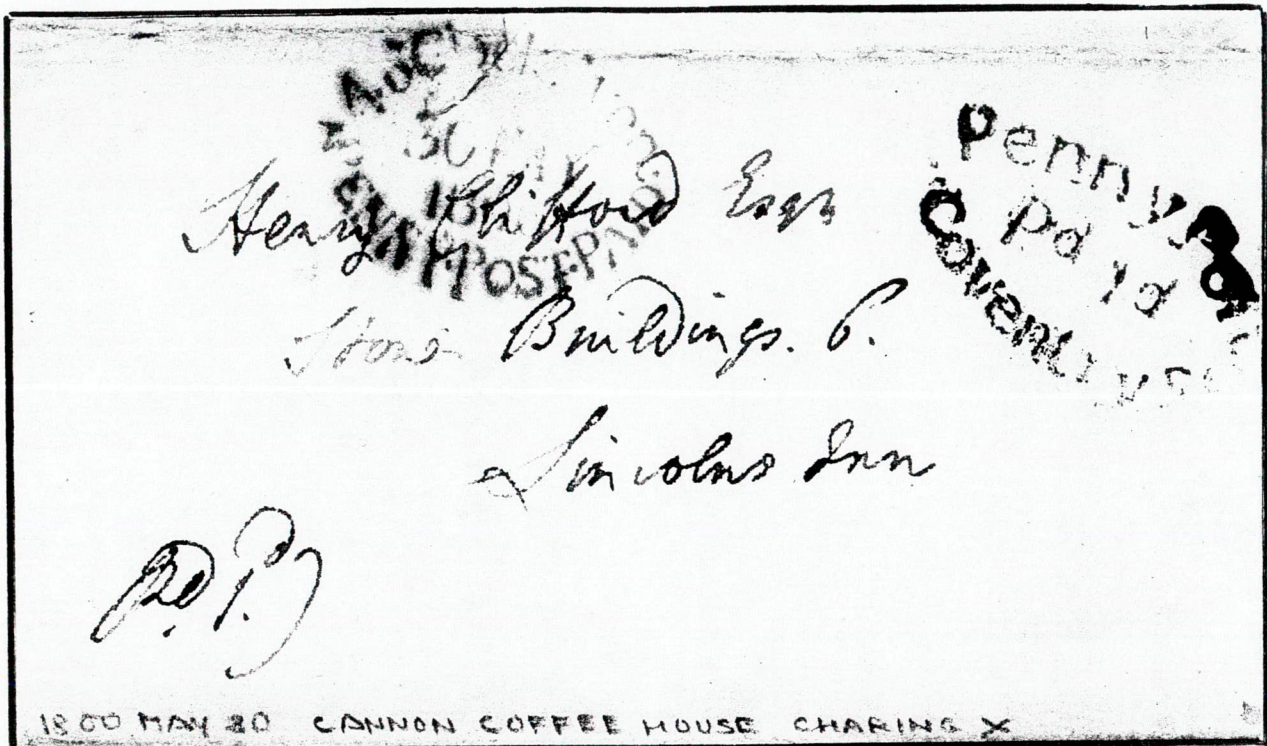 8 o'Clock
30 MAY
1800
PENNY POST PAID
Penny Post
Pd 1d
Coventry St
Henry Clifford Esqr
Stone Buildings. 6.
Lincolns Inn
Pd. P.
1800 MAY 30 CANNON COFFEE HOUSE CHARING X